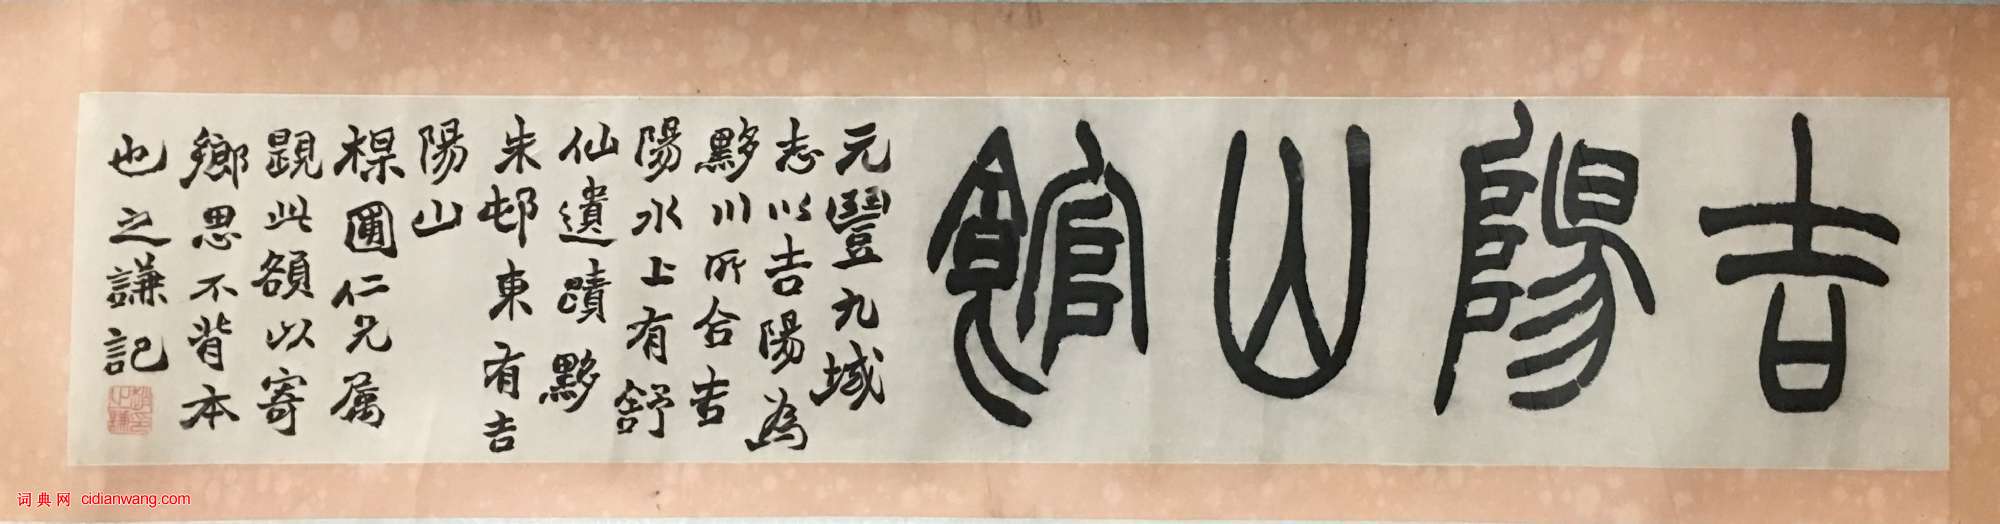 吉陽山館
元豐九域
志以吉陽為
黟川所合吉
陽水上有舒
仙遺蹟黟
朱邨東有吉
陽山
楳圃仁兄属
題此額以寄
鄉思不背本
也之謙記
趙印之謙
词典网 cidianwang.com